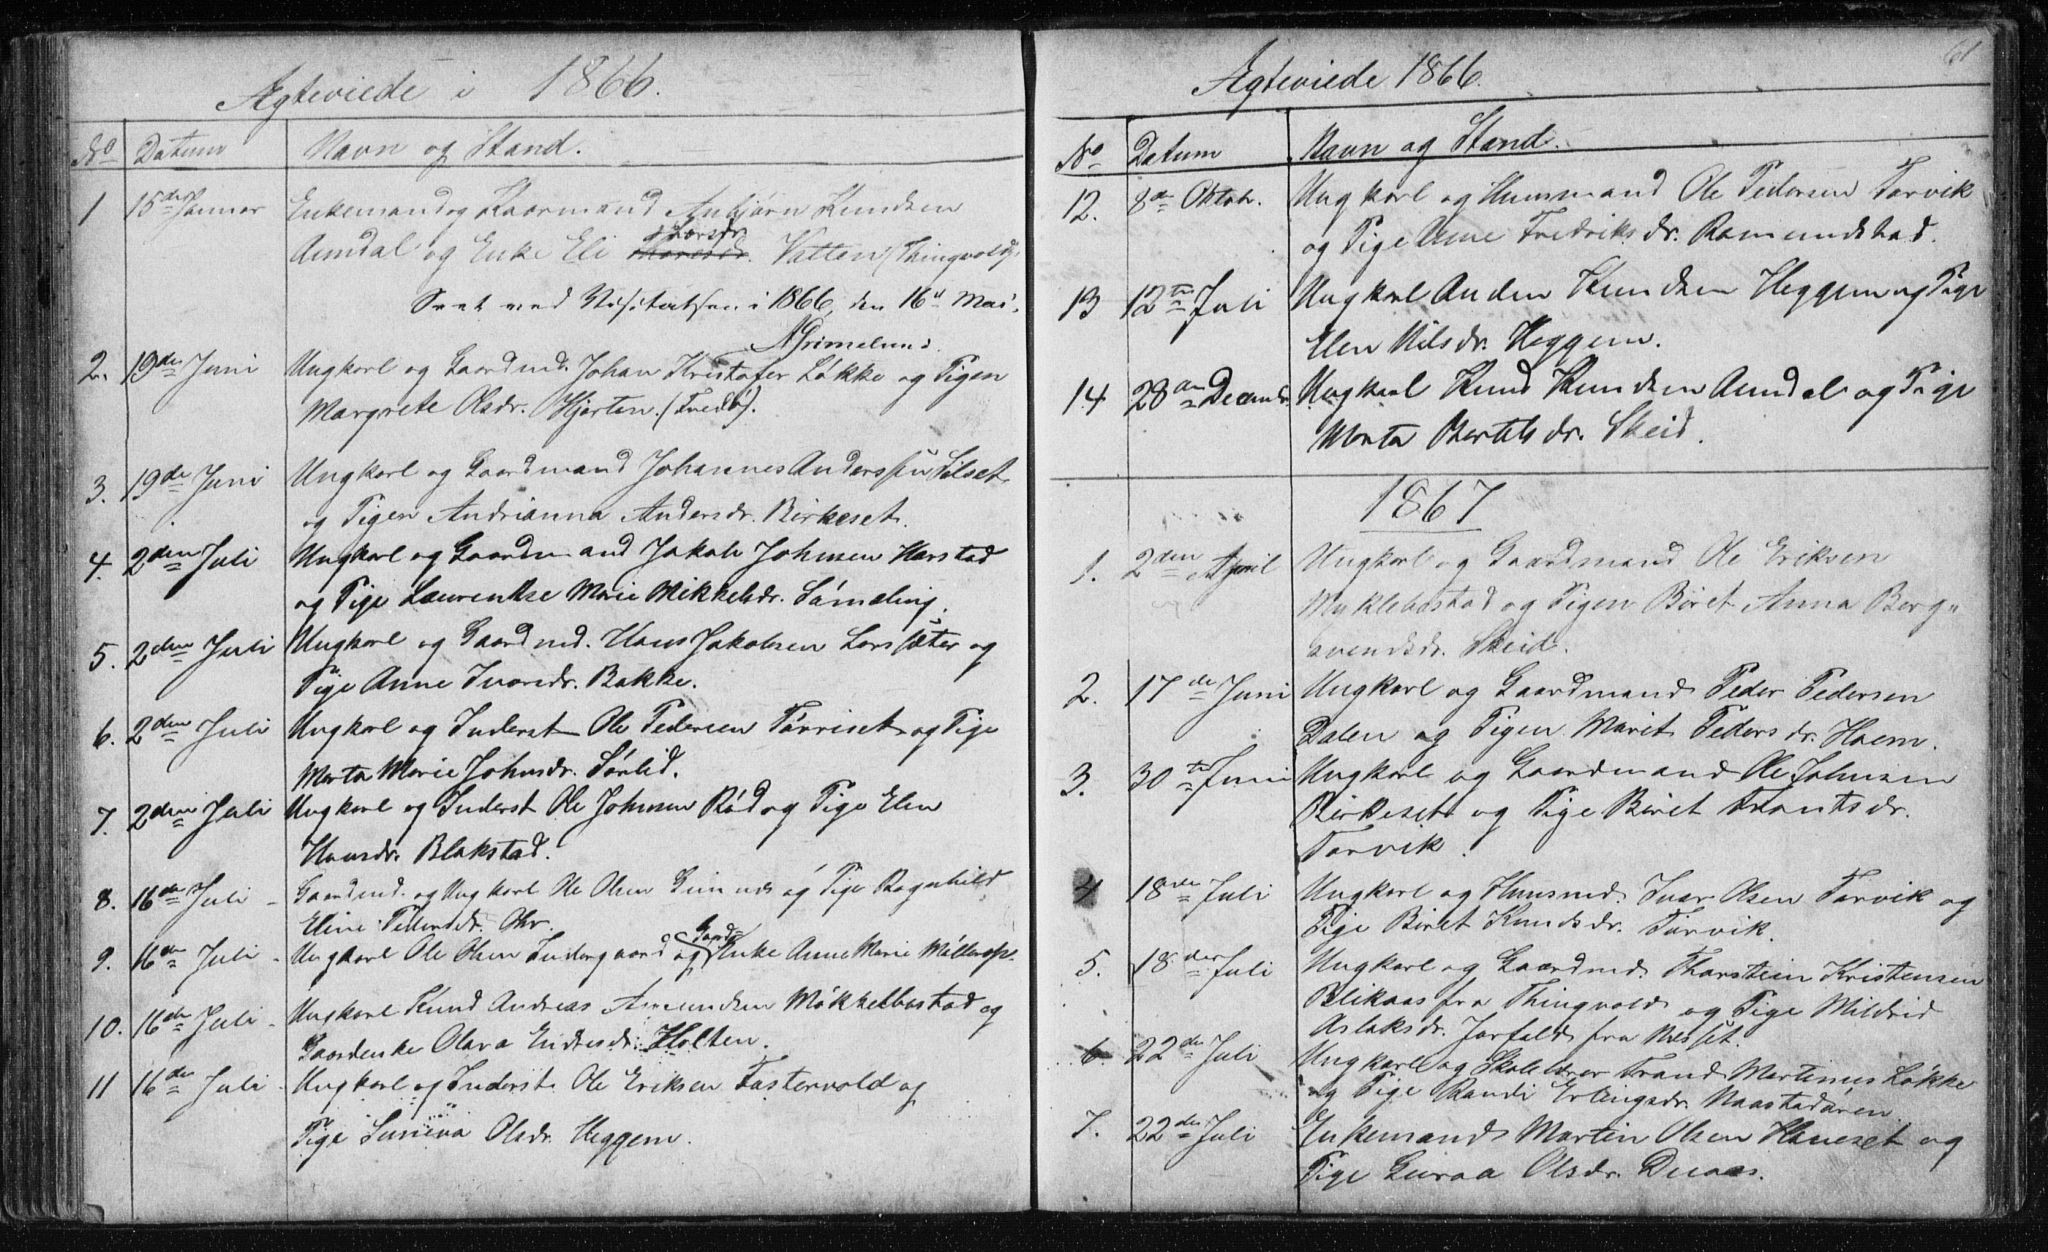 Ægteviede i 1866.
No Datum Navn og Stand.
1 15de Januar Enkemand og Kaarmand Anbjørn Knudsen
Aundal og Enke Eli Larsdr. Vatten (Thingvold).
Seet ved Visitatsen i 1866, den 16de Mai.
AGrimelund.
2. 19de Juni Ungkarl og Gaardmd. Johan Kristofer Løkke og Pigen
Margrete Olsdr. Hjorten. (Fredø).
3. 19de Juni Ungkarl og Gaardmand Johannes Andersøn Silset
og Pigen Andrianna Andersdr. Birkeset.
4. 2den Juli Ungkarl og Gaardmand Jakob Johnsen Harstad
og Pige Laurentse Marie Mikkelsdr. Sømeling.
5. 2den Juli Ungkarl og Gaardmd. Hans Jakobsen Larssæter og
Pige Anne Ivarsdr. Bakke.
6. 2den Juli Ungkarl og Inderst Ole Pedersen Tørriset og Pige
Marta Marie Johnsdr. Sørlid.
7. 2den Juli Ungkarl og Inderst Ole Johnsen Rød og Pige Elen
Hansdr. Blakstad.
8. 16de Juli - Gaardmd. og Ungkarl Ole Olsen Gimnes og Pige Ragnhild
Eline Pedersdr. Ohr.
9. 16de Juli - Ungkarl Ole Olsen Indergaard og Gaard Enke Anne Marie Møllerop.
10. 16de Juli - Ungkarl Knud Andreas Amundsen Møkkelbostad og
Gaardenke Olava Endresdr. Holten.
11 16de Juli - Ungkarl og Inderst Ole Eriksen Fastervold og
Pige Suneva Olsdr. Heggem.
61
Ægteviede 1866.
No Datum Navn og Stand.
12. 8de Oktob. Ungkarl og Huusmand Ole Pedersen Torvik
og Pige Ane Fredriksdr. Ramundstad.
13 12te Juli Ungkarl Anden Knudsen Heggem og Pige
Elen Nilsdr. Heggem.
14 28de Decemb. Ungkarl Knud Knudsen Aundal og Pige
Marta Bertelsdr. Skeid.
1867
1. 2den April Ungkarl og Gaardmand Ole Eriksen
Myklebostad og Pigen Børet Anna Berg-
svendsdr. Skeid.
2. 17de Juni Ungkarl og Gaardmand Peder Pedersen
Dalen og Pigen Marit Pedersdr. Hoem.
3. 30te Juni Ungkarl og Gaardmand Ole Johnsen
Birkeset og Pige Børet Trondsdr.
Torvik.
4 18de Juli Ungkarl og Huusmd. Ivar Olsen Torvik og
Pige Børet Knudsdr. Torvik.
5. 18de Juli Ungkarl og Gaardmd. Thorstein Kristensen
Blikaas fra Thingvold og Pige Mildrid
Aslaksdr. Jorfald fra Nesset.
6. 22de Juli Ungkarl og Skolelærer Trond Martinus Løkke
og Pige Randi Erlingsdr. Naastadøren.
7. 22de Juli Enkemand Martin Olsen Haneset og
Pige Guroa Olsdr. Duaas.